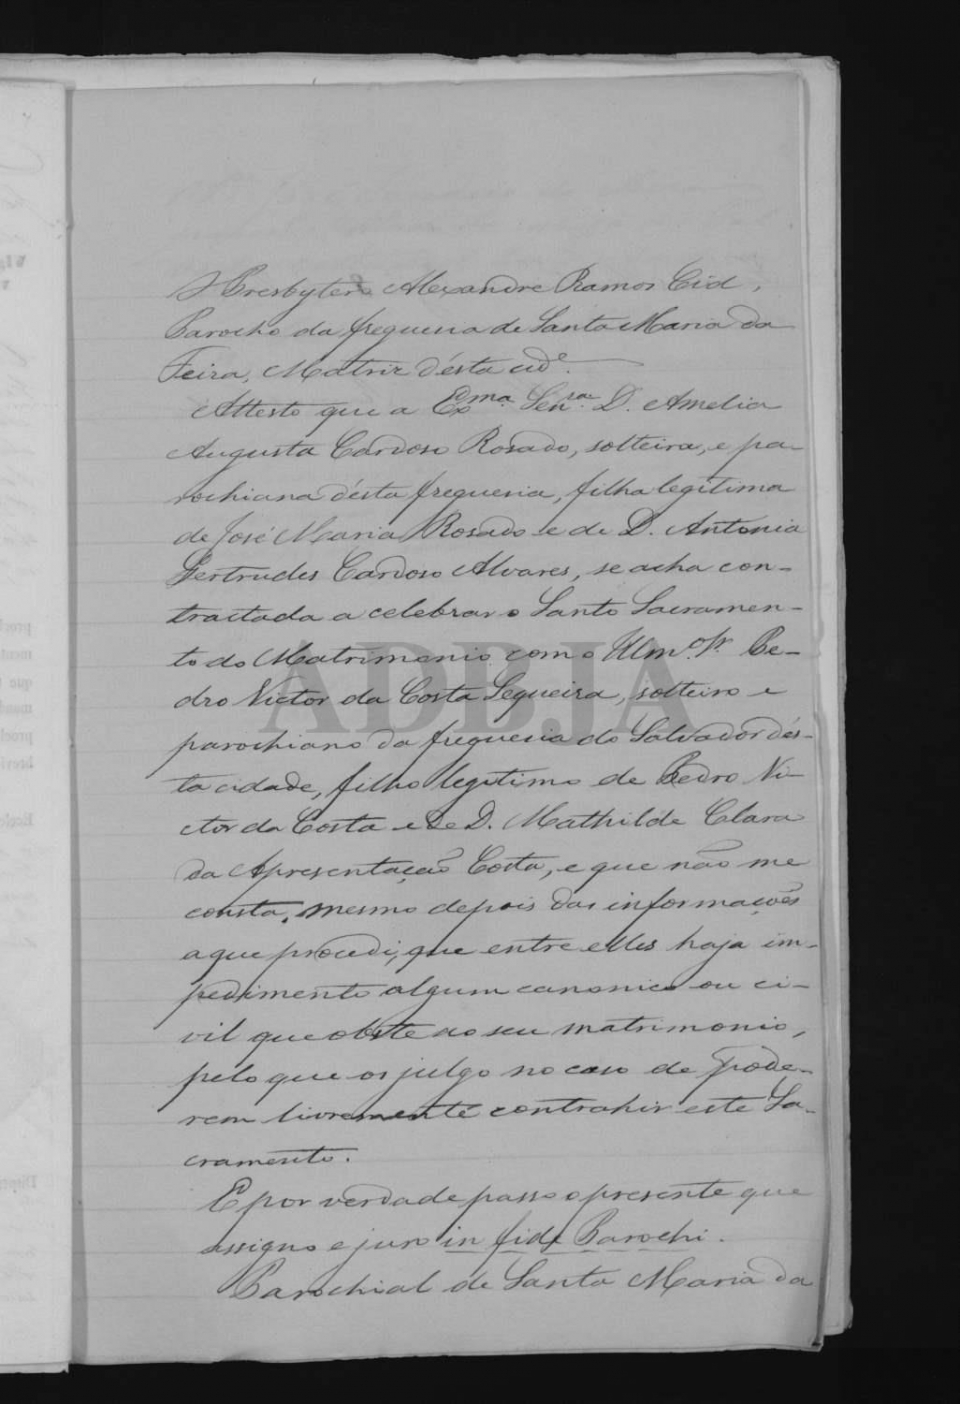 O Presbytero Alexandre Ramos Cid,
Parocho da freguesia de Santa Maria da
Feira, Matriz d'ésta cide.
Attesto que a Exma. Senra. D. Amelia
Augusta Cardoso Rosado, solteira, e pa-
rochiana d'ésta freguesia, filha legitima
de José Maria Rosado e de D. Antonia
Gertrudes Cardoso Alvares, se acha con-
tractada a celebrar o Santo Sacramen-
to do Matrimonio com o Illmo. Sr. Pe-
dro Victor da Costa Sequeira, solteiro e
parochiano da freguesia do Salvador d'és-
ta cidade, filho legitimo de Pedro Vi-
ctor da Costa e de D. Mathilde Clara
da Apresentação Costa, e que não me
consta, mesmo depois das informações
a que procedi, que entre elles haja im-
pedimento algum canonico ou ci-
vil que obste ao seu matrimonio,
pelo que os julgo no caso de pode-
rem livremente contrahir este Sa-
cramento.
E por verdade passo o presente que
assigno e juro in fide Parochi.
Parochial de Santa Maria da
ADBJA